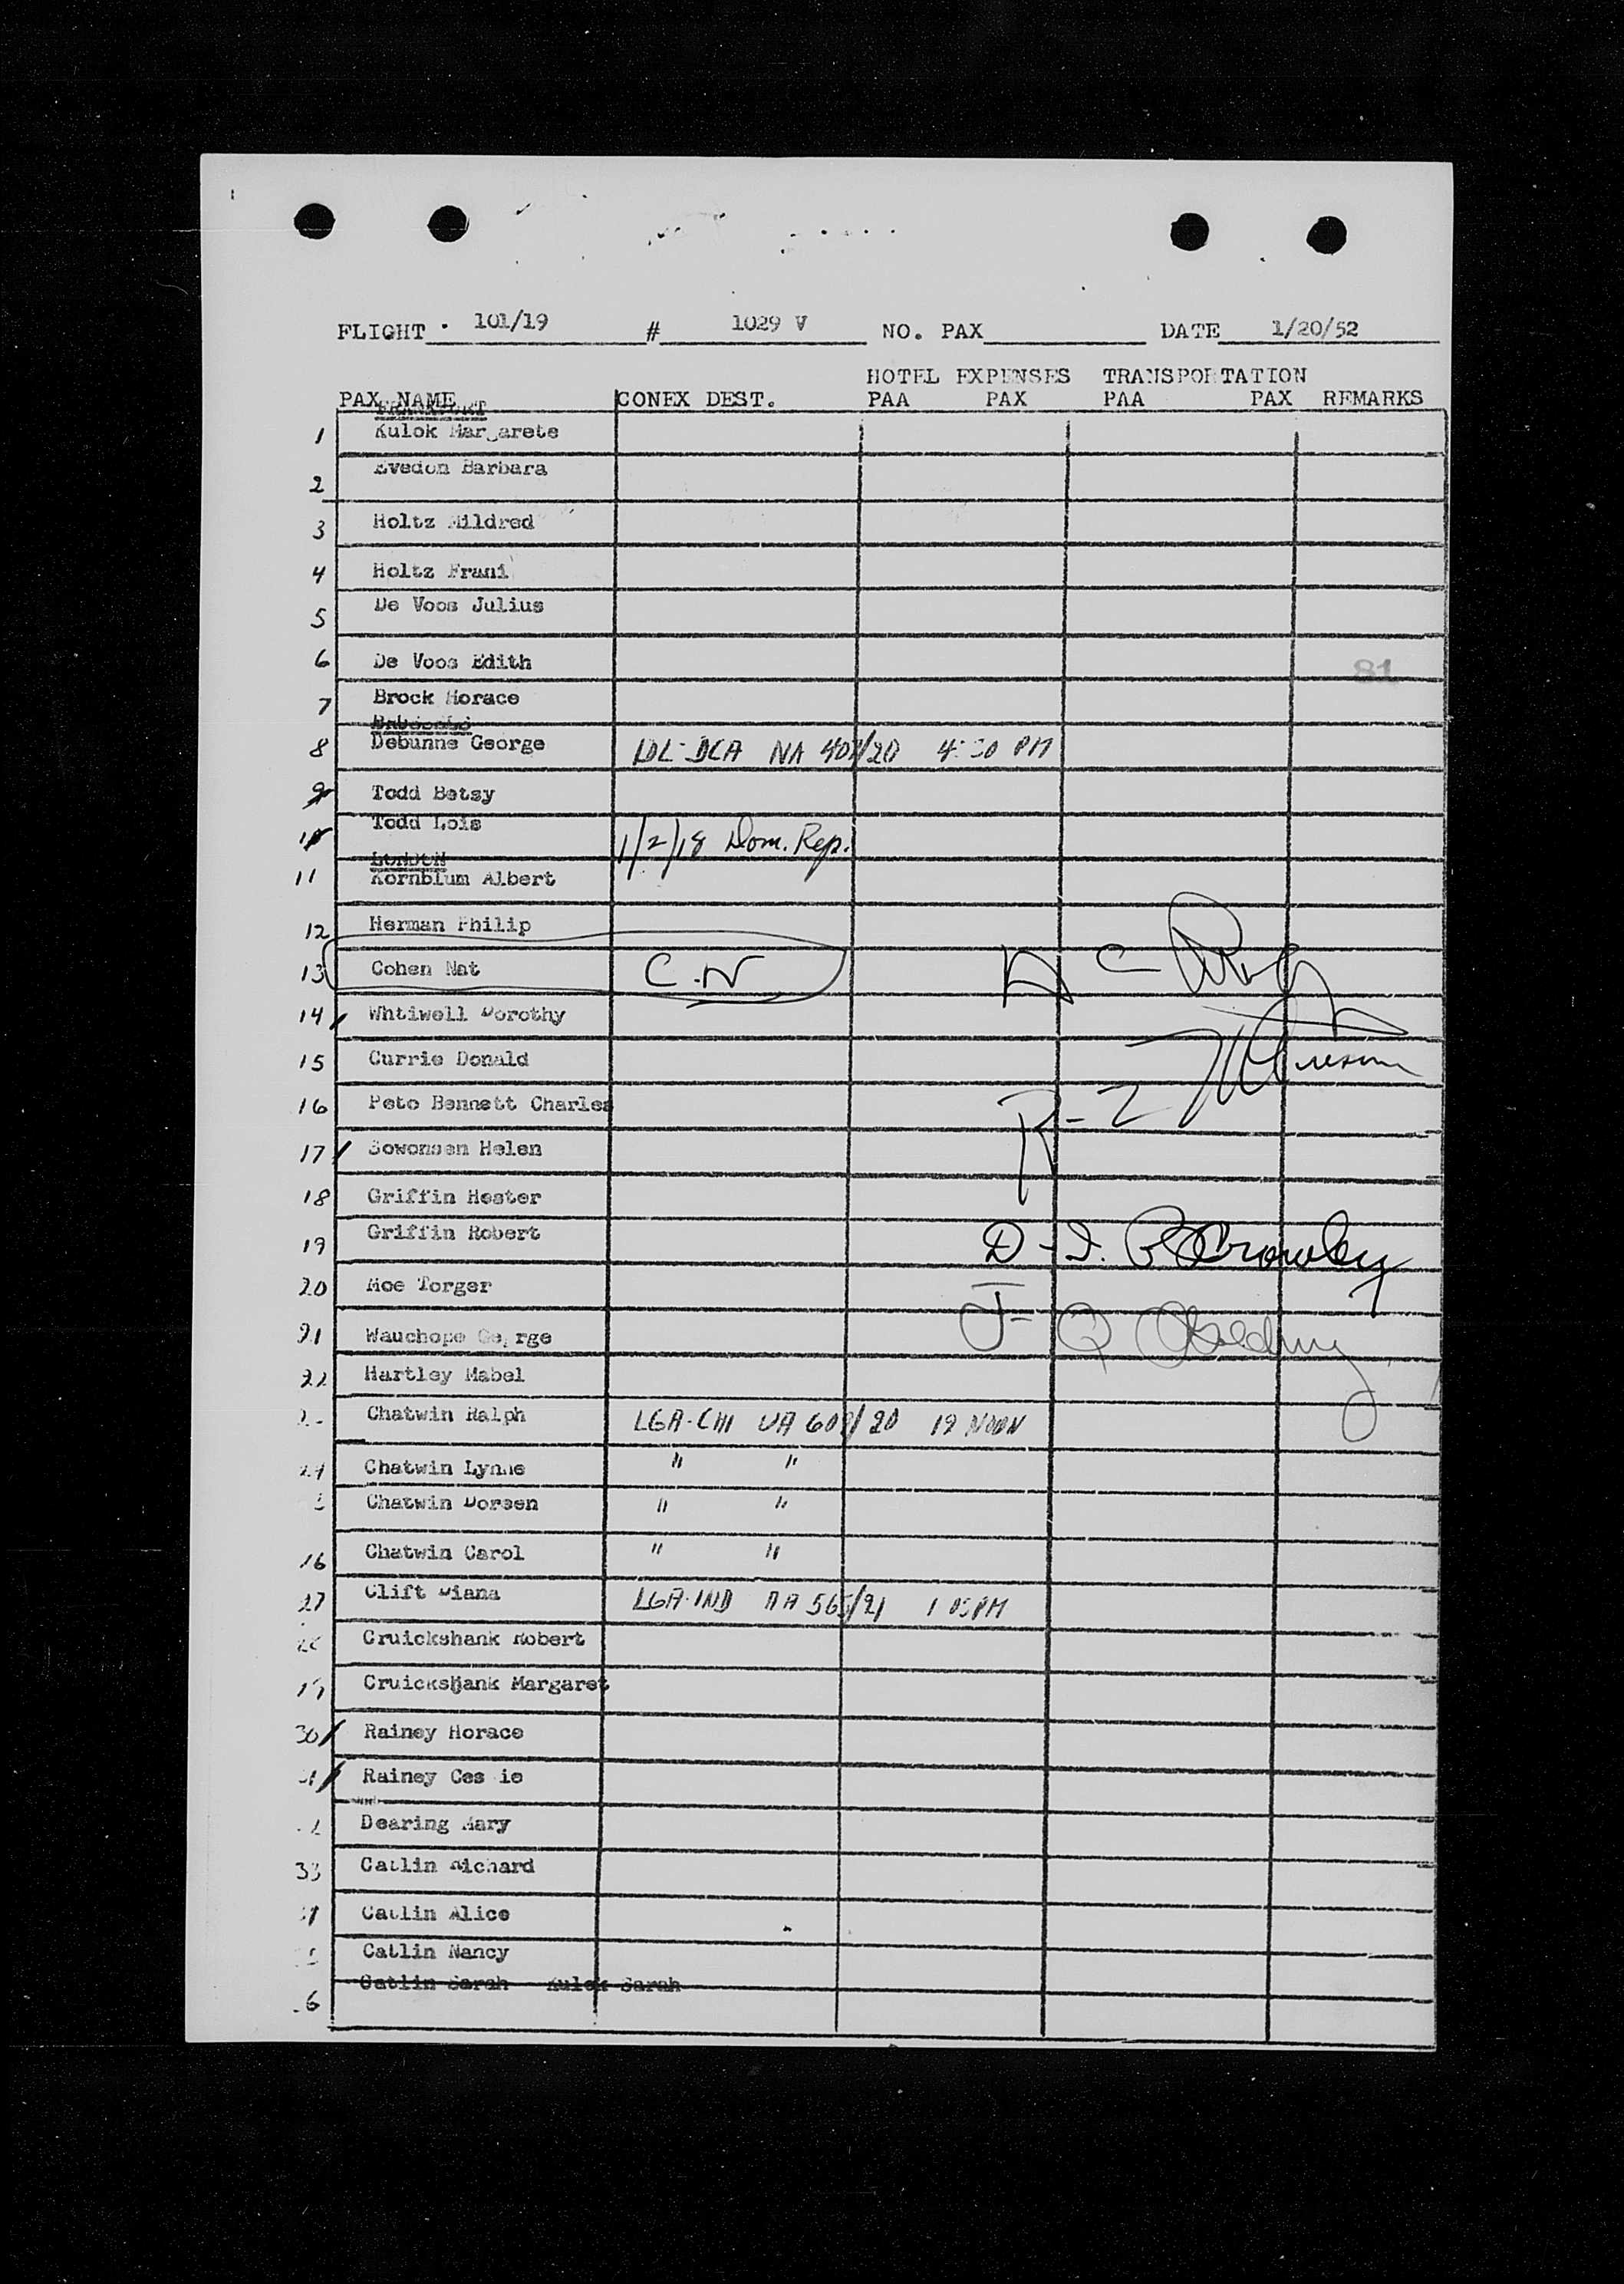 FLIGHT 101/19 # 1029 V NO. PAX DATE 1/20/52
HOTEL EXPENSES TRANSPORTATION
PAX NAME CONEX DEST. PAA PAX PAA PAX REMARKS
FRANKFURT
1 Kulok Margarete
2 Evedon Barbara
3 Holtz Mildred
4 Holtz Frani
5 De Voos Julius
6 De Voos Edith
81
7 Brock Horace
8 Debunne George IDL-DCA NA 40 /20 4:30 PM
9 Todd Betsy
10 Todd Lois 1/2/18 Dom. Rep.
LONDON
11 Kornblum Albert
12 Herman Philip
13 Cohen Nat C.N
14 Whtiwell Dorothy
15 Currie Donald
16 Peto Bennett Charles R-2
17 Sowonsen Helen
18 Griffin Hester
19 Griffin Robert D-I. Crowley
20 Moe Torger
21 Wauchope George
22 Hartley Mabel
Chatwin Ralph LGA-CHI UA 60 /20 12 NOON
24 Chatwin Lynne " "
Chatwin Doreen " "
26 Chatwin Carol " "
27 Clift Diana LGA-IND AA 565/21 1 05PM
28 Cruickshank Robert
29 Cruickshank Margaret
30 Rainey Horace
31 Rainey
Dearing Mary
33 Catlin Richard
Catlin Alice
Catlin Nancy
6 Catlin Sarah Kulok Sarah